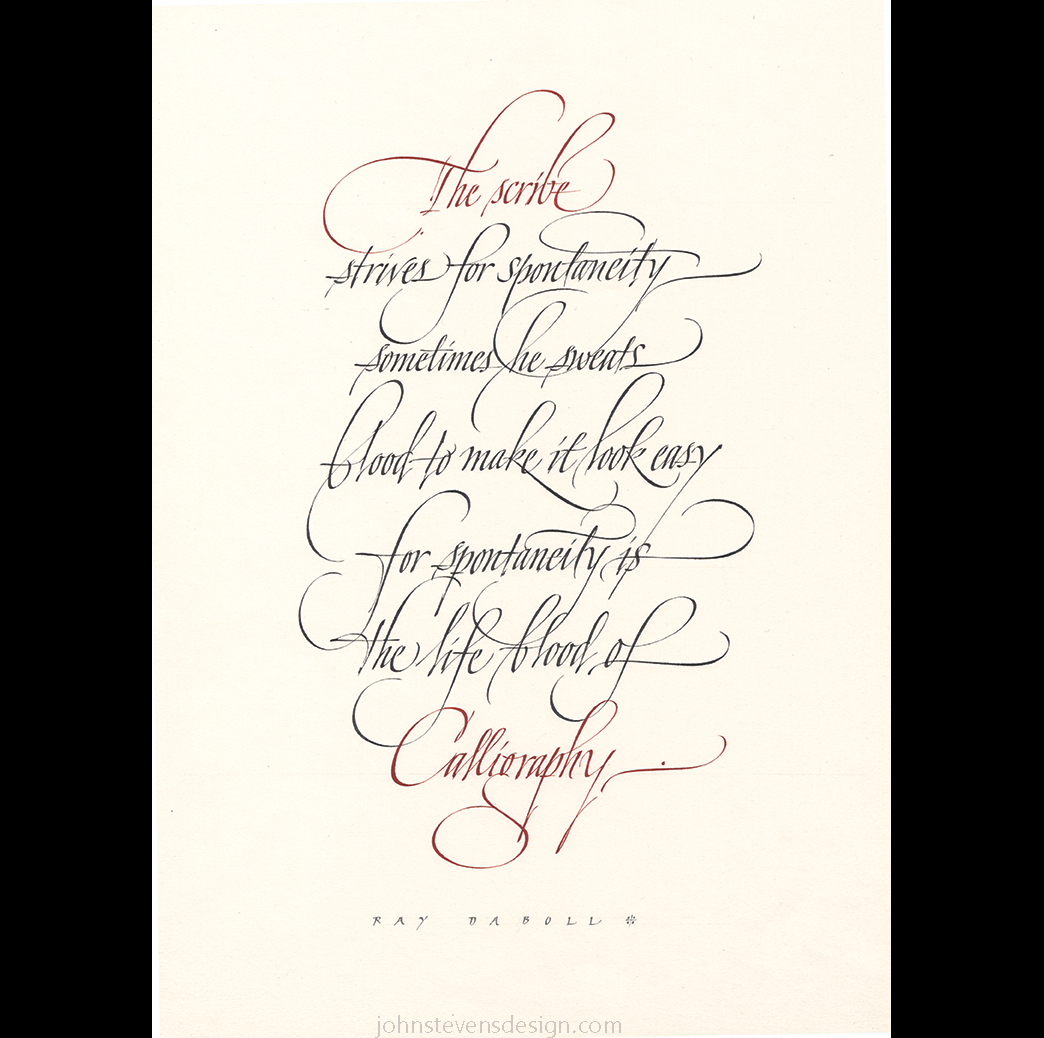 The scribe
strives for spontaneity
sometimes he sweats
blood to make it look easy
for spontaneity is
the life blood of
Calligraphy.
RAY DABOLL
johnstevensdesign.com